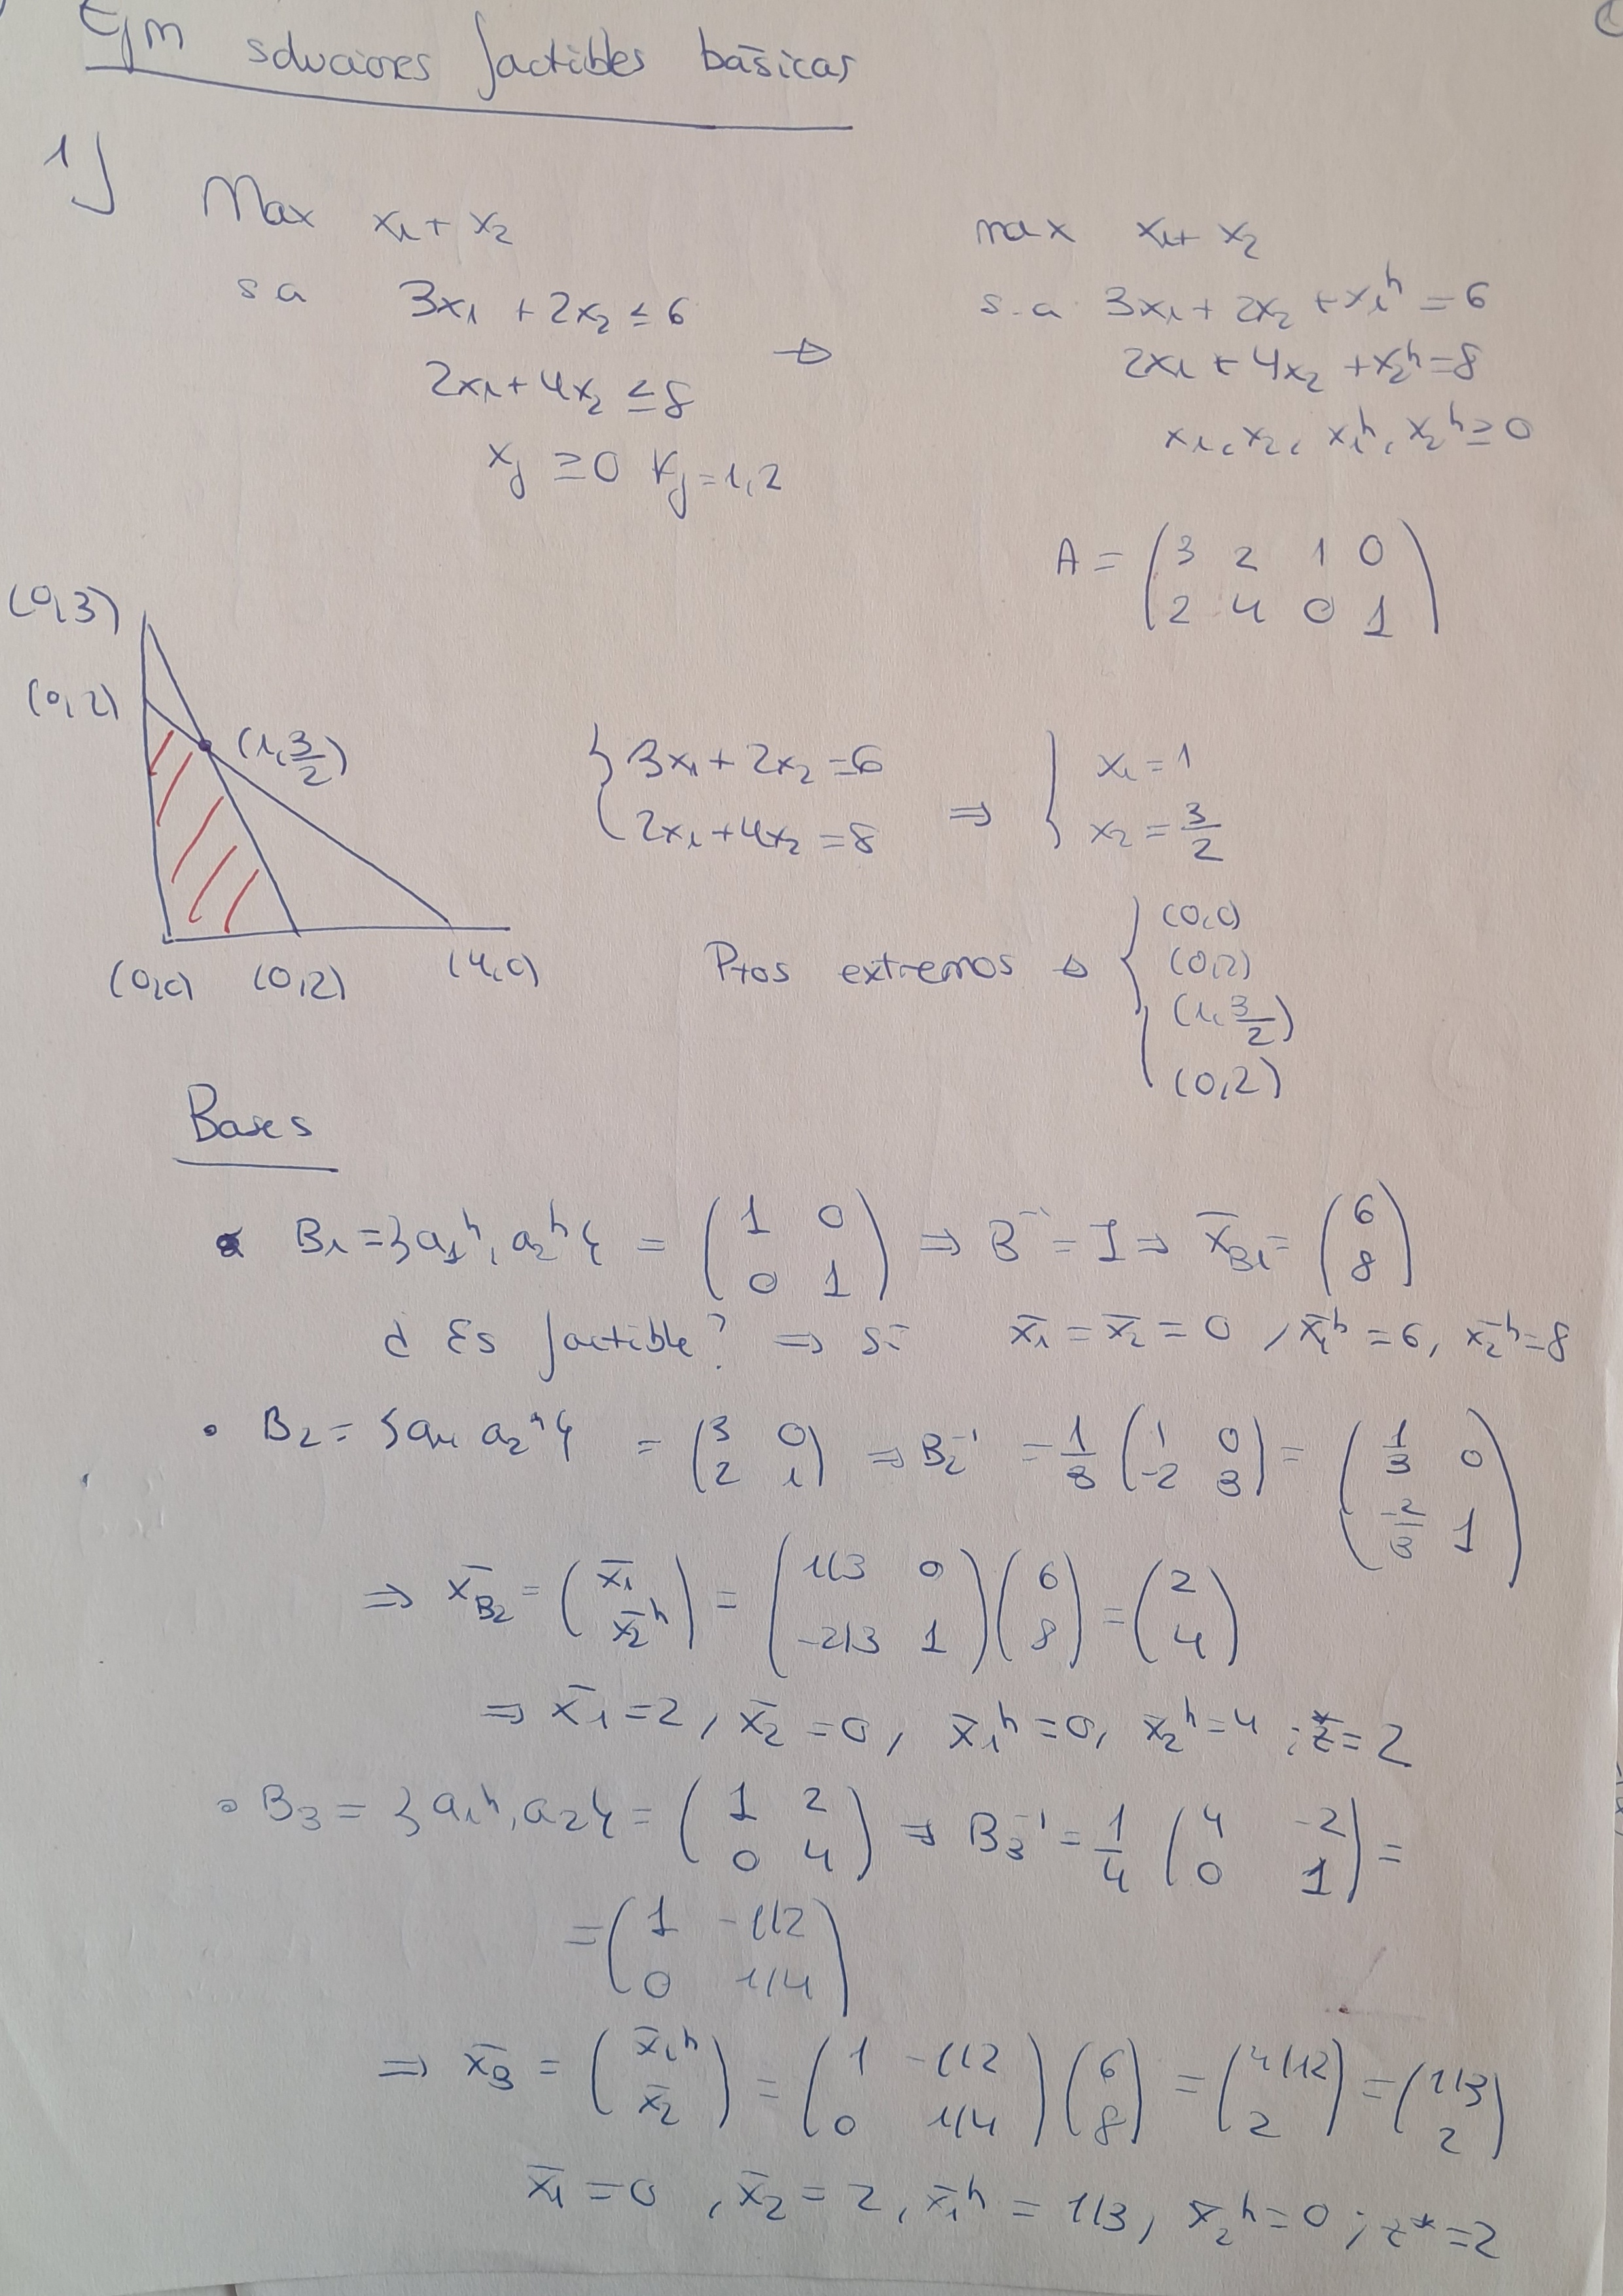 Ejm soluciones factibles básicas
1)
Max x₁ + x₂
s a 3x₁ + 2x₂ ≤ 6
2x₁ + 4x₂ ≤ 8
xⱼ ≥ 0 ∀ⱼ = 1, 2
⇒
max x₁ + x₂
s.a 3x₁ + 2x₂ + x₁ʰ = 6
2x₁ + 4x₂ + x₂ʰ = 8
x₁, x₂, x₁ʰ, x₂ʰ ≥ 0
A = (3 2 1 0
2 4 0 1)
(0,3)
(0,2)
(1, 3/2)
(0,0) (0,2) (4,0)
{3x₁ + 2x₂ = 6
2x₁ + 4x₂ = 8 ⇒ {x₁ = 1
x₂ = 3/2
Ptos extremos ⇒ {(0,0)
(0,2)
(1, 3/2)
(0,2)
Bases
• B₁ = {a₁ʰ, a₂ʰ} = (1 0
0 1) ⇒ B⁻¹ = I ⇒ x̄_B₁ = (6
8)
¿ Es factible? ⇒ Sí x̄₁ = x̄₂ = 0, x̄₁ʰ = 6, x̄₂ʰ = 8
• B₂ = {a₁ a₂ʰ} = (3 0
2 1) ⇒ B₂⁻¹ = 1/3 (1 0
-2 3) = (1/3 0
-2/3 1)
⇒ x̄_B₂ = (x̄₁
x̄₂ʰ) = (1/3 0
-2/3 1)(6
8) = (2
4)
⇒ x̄₁ = 2, x̄₂ = 0, x̄₁ʰ = 0, x̄₂ʰ = 4 ; z* = 2
• B₃ = {a₁ʰ, a₂} = (1 2
0 4) ⇒ B₃⁻¹ = 1/4 (4 -2
0 1) =
= (1 -1/2
0 1/4)
⇒ x̄_B = (x̄₁ʰ
x̄₂) = (1 -1/2
0 1/4)(6
8) = (4/12
2) = (1/3
2)
x̄₁ = 0, x̄₂ = 2, x̄₁ʰ = 1/3, x̄₂ʰ = 0 ; z* = 2